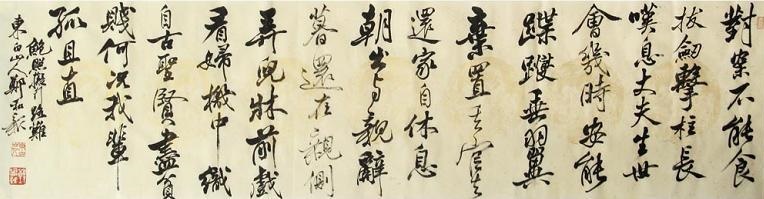 對案不能食
拔劍擊柱長
嘆息丈夫生世
會幾時安能
蹀躞垂羽翼
棄置官去
還家自休息
朝出与親辭
暮還在親側
弄兒牀前戲
看婦機中織
自古聖賢盡貧
賤何況我輩
孤且直
鮑照擬路難
東白山人鄭